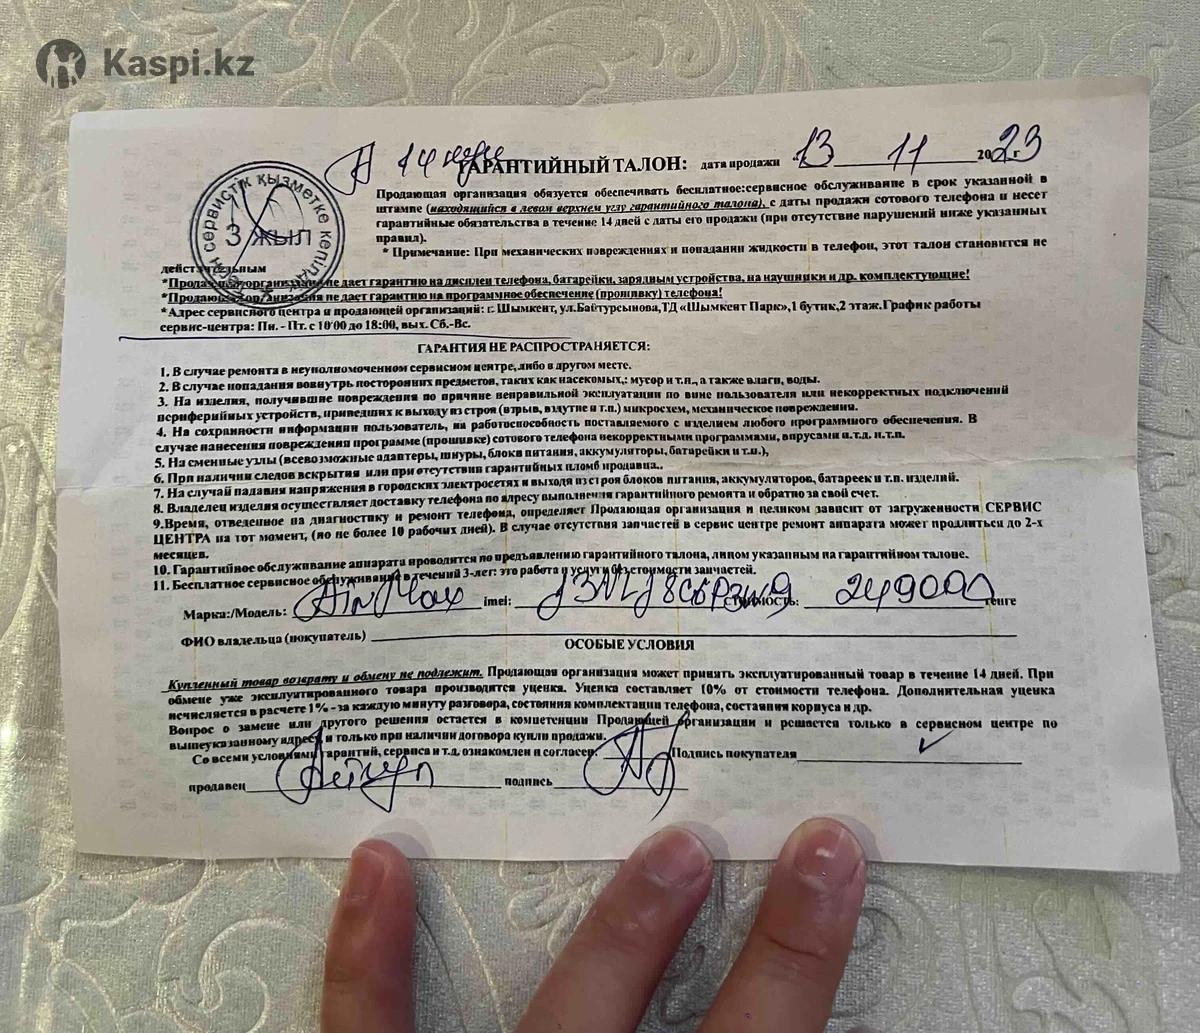 Kaspi.kz
ГАРАНТИЙНЫЙ ТАЛОН: дата продажи «13 11 2023 г
сервистік қызметке кепілдік
3 ЖЫЛ
Продающая организация обязуется обеспечивать бесплатное:сервисное обслуживание в срок указанной в
штампе (находящийся в левом верхнем углу гарантийного талона), с даты продажи сотового телефона и несет
гарантийные обязательства в течение 14 дней с даты его продажи (при отсутствие нарушений ниже указанных
правил).
* Примечание: При механических повреждениях и попадании жидкости в телефон, этот талон становится не
действительным
*Продающая организация не дает гарантию на дисплеи телефона, батарейки, зарядным устройства, на наушники и др. комплектующие!
*Продающая организация не дает гарантию на программное обеспечение (прошивку) телефона!
*Адрес сервисного центра и продающей организаций: г. Шымкент, ул.Байтурсынова,ТД «Шымкент Парк»,1 бутик,2 этаж.График работы
сервис-центра: Пн. - Пт. с 10:00 до 18:00, вых. Сб.-Вс.
ГАРАНТИЯ НЕ РАСПРОСТРАНЯЕТСЯ:
1. В случае ремонта в неуполномоченном сервисном центре, либо в другом месте.
2. В случае попадания вовнутрь посторонних предметов, таких как насекомых,: мусор и т.п., а также влаги, воды.
3. На изделия, получившие повреждение по причине неправильной эксплуатации по вине пользователя или некорректных подключений
периферийных устройств, приведших к выходу из строя (взрыв, вздутие и т.п.) микросхем, механическое повреждения.
4. На сохранности информации пользователь, на работоспособность поставляемого с изделием любого программного обеспечения. В
случае нанесения повреждения программе (прошивке) сотового телефона некорректными программами, вирусами и.т.д. и.т.п.
5. На сменные узлы (всевозможные адаптеры, шнуры, блоки питания, аккумуляторы, батарейки и т.п.),
6. При наличии следов вскрытия или при отсутствии гарантийных пломб продавца..
7. На случай падания напряжения в городских электросетях и выхода из строя блоков питания, аккумуляторов, батареек и т.п. изделий.
8. Владелец изделия осуществляет доставку телефона по адресу выполнения гарантийного ремонта и обратно за свой счет.
9.Время, отведенное на диагностику и ремонт телефона, определяет Продающая организация и целиком зависит от загруженности СЕРВИС
ЦЕНТРА на тот момент, (но не более 10 рабочих дней). В случае отсутствия запчастей в сервис центре ремонт аппарата может продлиться до 2-х
месяцев.
10. Гарантийное обслуживание аппарата проводится по предъявлению гарантийного талона, лицом указанным на гарантийном талоне.
11. Бесплатное сервисное обслуживание в течений 3-лет: это работа и услуги без стоимости запчастей.
Марка:/Модель: AirMax imei: стоимость: 249000 тенге
ФИО владельца (покупатель)
ОСОБЫЕ УСЛОВИЯ
Купленный товар возврату и обмену не подлежит. Продающая организация может принять эксплуатированный товар в течение 14 дней. При
обмене уже эксплуатированного товара производится уценка. Уценка составляет 10% от стоимости телефона. Дополнительная уценка
исчисляется в расчете 1% - за каждую минуту разговора, состояния комплектации телефона, состояния корпуса и др.
Вопрос о замене или другого решения остается в компетенции Продающей организации и решается только в сервисном центре по
вышеуказанному адресу и только при наличии договора купли продажи.
Со всеми условиями гарантий, сервиса и т.д. ознакомлен и согласен: Подпись покупателя
продавец подпись